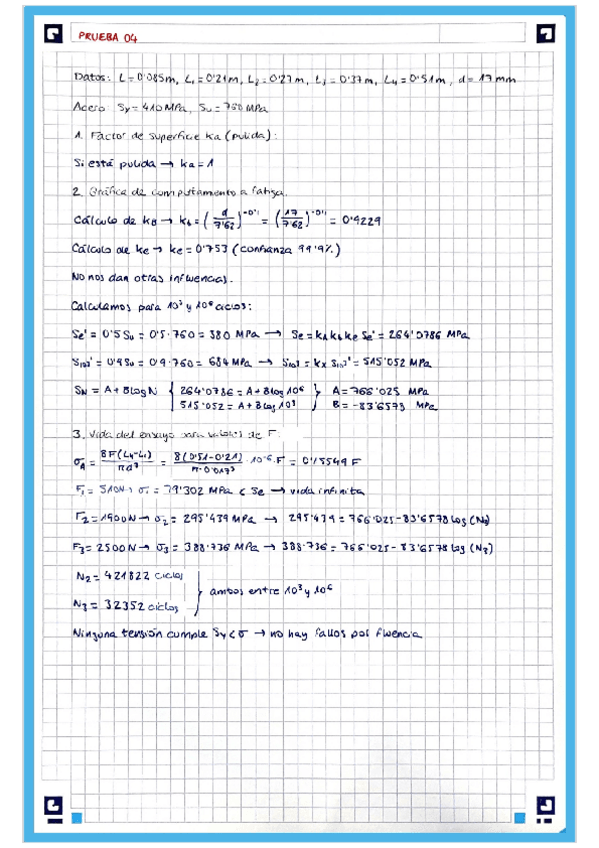 PRUEBA 04
Datos: L = 0'085m, L₁ = 0'21m, L₂ = 0'27m, L₃ = 0'37m, L₄ = 0'51m, d = 17mm
Acero: Sy = 410 MPa, Su = 760 MPa
1. Factor de superficie ka (pulida):
Si está pulida → ka = 1
2. Gráfica de comportamiento a fatiga.
Cálculo de kb → kb = (d/7'62)^-0'1 = (17/7'62)^-0'1 = 0'9229
Cálculo de ke → ke = 0'753 (confianza 99'9%)
No nos dan otras influencias.
Calculamos para 10³ y 10⁶ ciclos:
Se' = 0'5Su = 0'5·760 = 380 MPa → Se = ka kb ke Se' = 264'0786 MPa
S₁₀³' = 0'9Su = 0'9·760 = 684 MPa → S₁₀³ = kx S₁₀³' = 515'052 MPa
SN = A + B log N { 264'0786 = A + B log 10⁶ } A = 766'025 MPa
515'052 = A + B log 10³ B = -83'6578 MPa
3. Vida del ensayo para valores de F.
σA = 8F(L₄-L₁)/πd³ = 8(0'51-0'21)/π·0'017³ · 10⁻⁶ · F = 0'15549 F
F₁ = 510N → σ₁ = 79'302 MPa < Se → vida infinita
F₂ = 1900N → σ₂ = 295'439 MPa → 295'439 = 766'025 - 83'6578 log (N₂)
F₃ = 2500N → σ₃ = 388'736 MPa → 388'736 = 766'025 - 83'6578 log (N₃)
N₂ = 421822 ciclos
} ambos entre 10³ y 10⁶
N₃ = 32352 ciclos
Ninguna tensión cumple Sy < σ → no hay fallos por fluencia